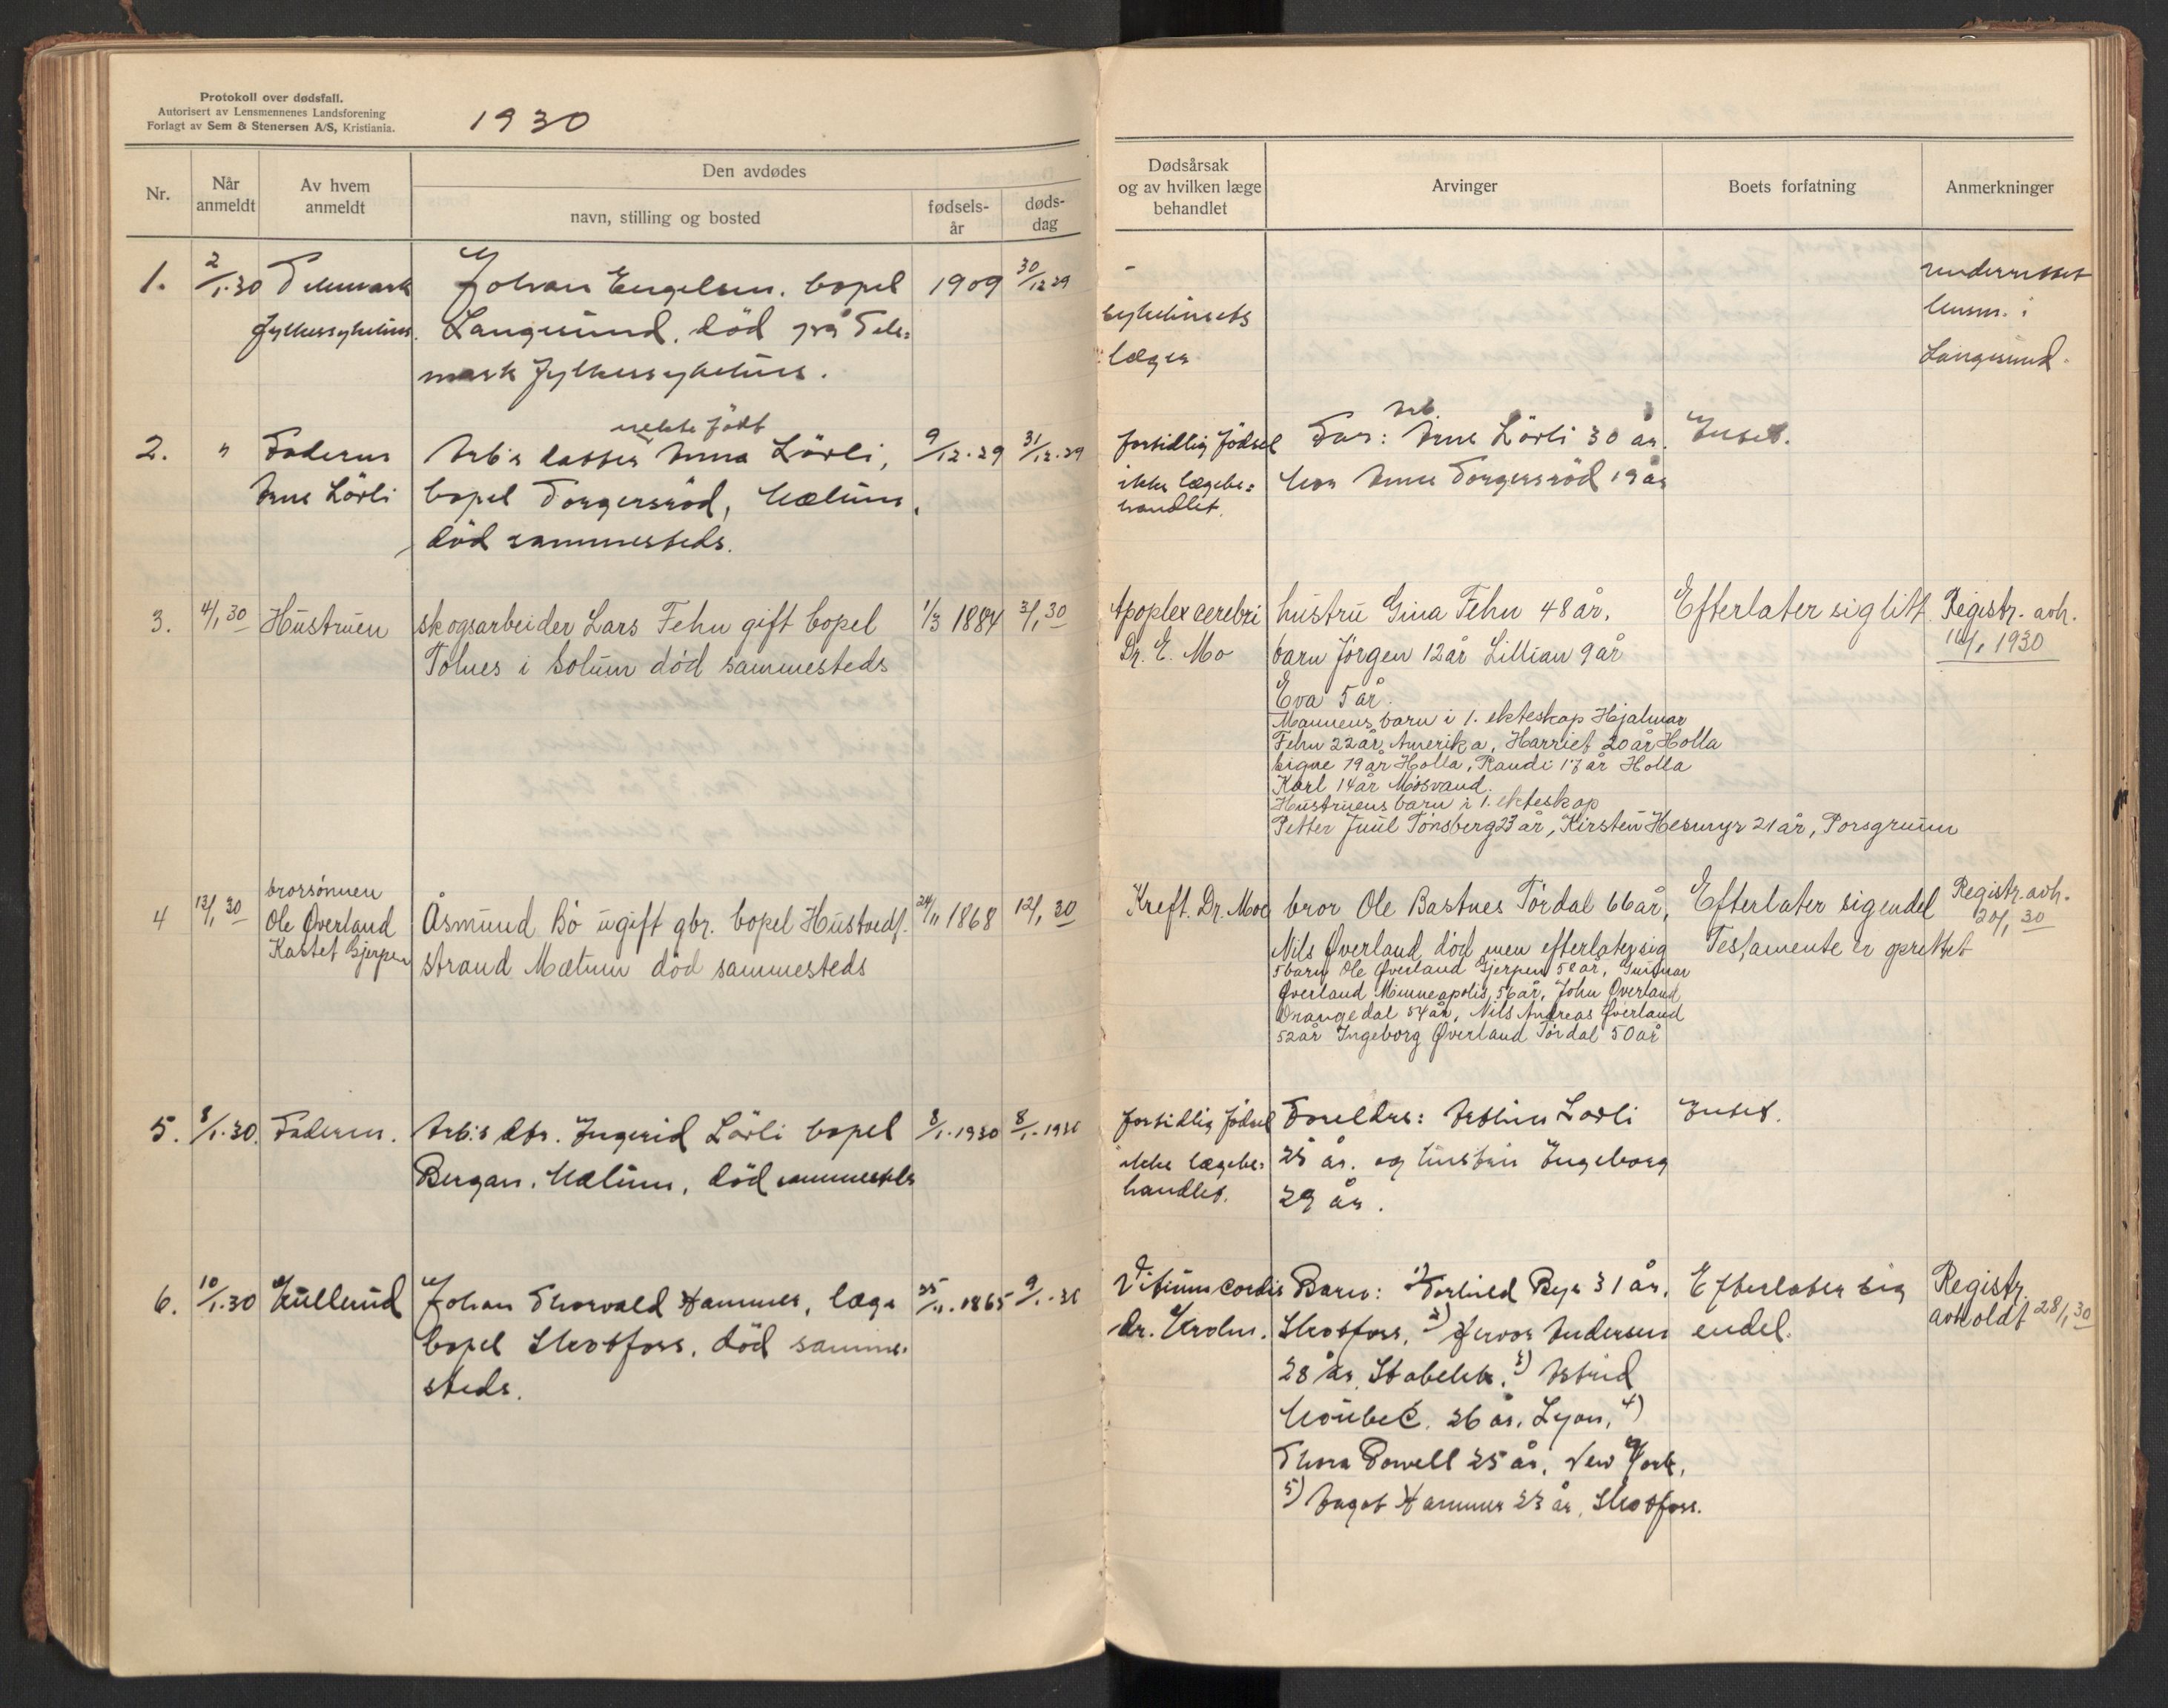 Protokoll over dødsfall.
Autorisert av Lensmennenes Landsforening
Forlagt av Sem & Stenersen A/S, Kristiania.
1930
Nr.
Når anmeldt
Av hvem anmeldt
Den avdødes
navn, stilling og bosted
fødsels-år
døds-dag
Dødsårsak og av hvilken læge behandlet
Arvinger
Boets forfatning
Anmerkninger
1. 2/1.30 Telemark Johan Engelsen. bopel 1909 30/12 29
fylkessykehus. Langesund. død på Tele=
mark fylkessykehus.
sykehusets
læger
underrettet
lensm. i
Langesund.
2. " Faderen Arb's datter Anna Lörli, 9/12.29 31/12.29
uekte født
Arne Lörli bopel Torgersröd, Mælum,
död sammesteds.
fortidlig födsel
ikke lægebe=
handlet.
Arb.
Far: Arne Lörli 30 år. Intet.
Mor Anna Torgersröd 19 år
3. 4/1 30 Hustruen skogsarbeider Lars Fehn gift bopel 1/3 1884 3/1 30
Tolnes i Solum död sammesteds
Apoplex cerebri
Dr. E. Mo
hustru Gina Fehn 48 år.
barn Jörgen 12 år Lillian 9 år
Eva 5 år.
Mannens barn i 1. ekteskap Hjalmar
Fehn 22 år Amerika, Harriet 20 år Holla
Signe 19 år Holla, Randi 17 år Holla
Karl 14 år Mösvand.
Hustruens barn i 1. ekteskap
Petter Juul Tönsberg 23 år, Kirsten Hesmyr 21 år, Porsgrunn
Efterlater sig litt
Registr. avh.
16/1 1930
4 13/1 30 brorsönnen
Ole Øverland
Kastet Gjerpen
Åsmund Bö ugift gbr. bopel Hustvedt-
strand Mælum död sammesteds
24/11 1868 12/1 30
Kreft. Dr. Moe
bror Ole Bastnes Tördal 66 år,
Nils Øverland död men efterlater sig
5 barn Ole Øverland Gjerpen 58 år, Gunnar
Øverland Minneapolis 56 år, John Øverland
Drangedal 54 år, Nils Andreas Øverland
52 år Ingeborg Øverland Tördal 50 år
Efterlater sig endel
Testamente er oprettet
Registr. avh.
20/1 30
5. 8/1.30. Faderen. Arb:s dtr. Ingerid Lörli bopel 8/1.1930 8/1.1930
Bergan. Mælum, död sammesteds
fortidlig födsel
ikke lægebe=
handlet.
Foreldre: Astinn Lörli
25 år. og hustru Ingeborg
29 år.
Intet.
6. 10/1.30 Kullerud Johan Thorvald Hammer, læge 25/11.1865 9/1.30
bopel Skotfoss, död samme-
steds.
Vitium cordis
Dr. Krohn.
Barn: 1) Torhild Bye 31 år.
Skotfoss, 2) Gervor Andersen
28 år, Stabekk. 3) Astrid
Moubec. 26 år. Lyon, 4)
Thora Powell 25 år, New York,
5) Aagot Hammer 23 år, Skotfoss.
Efterlater sig
endel.
Registr.
avholdt 28/1 30